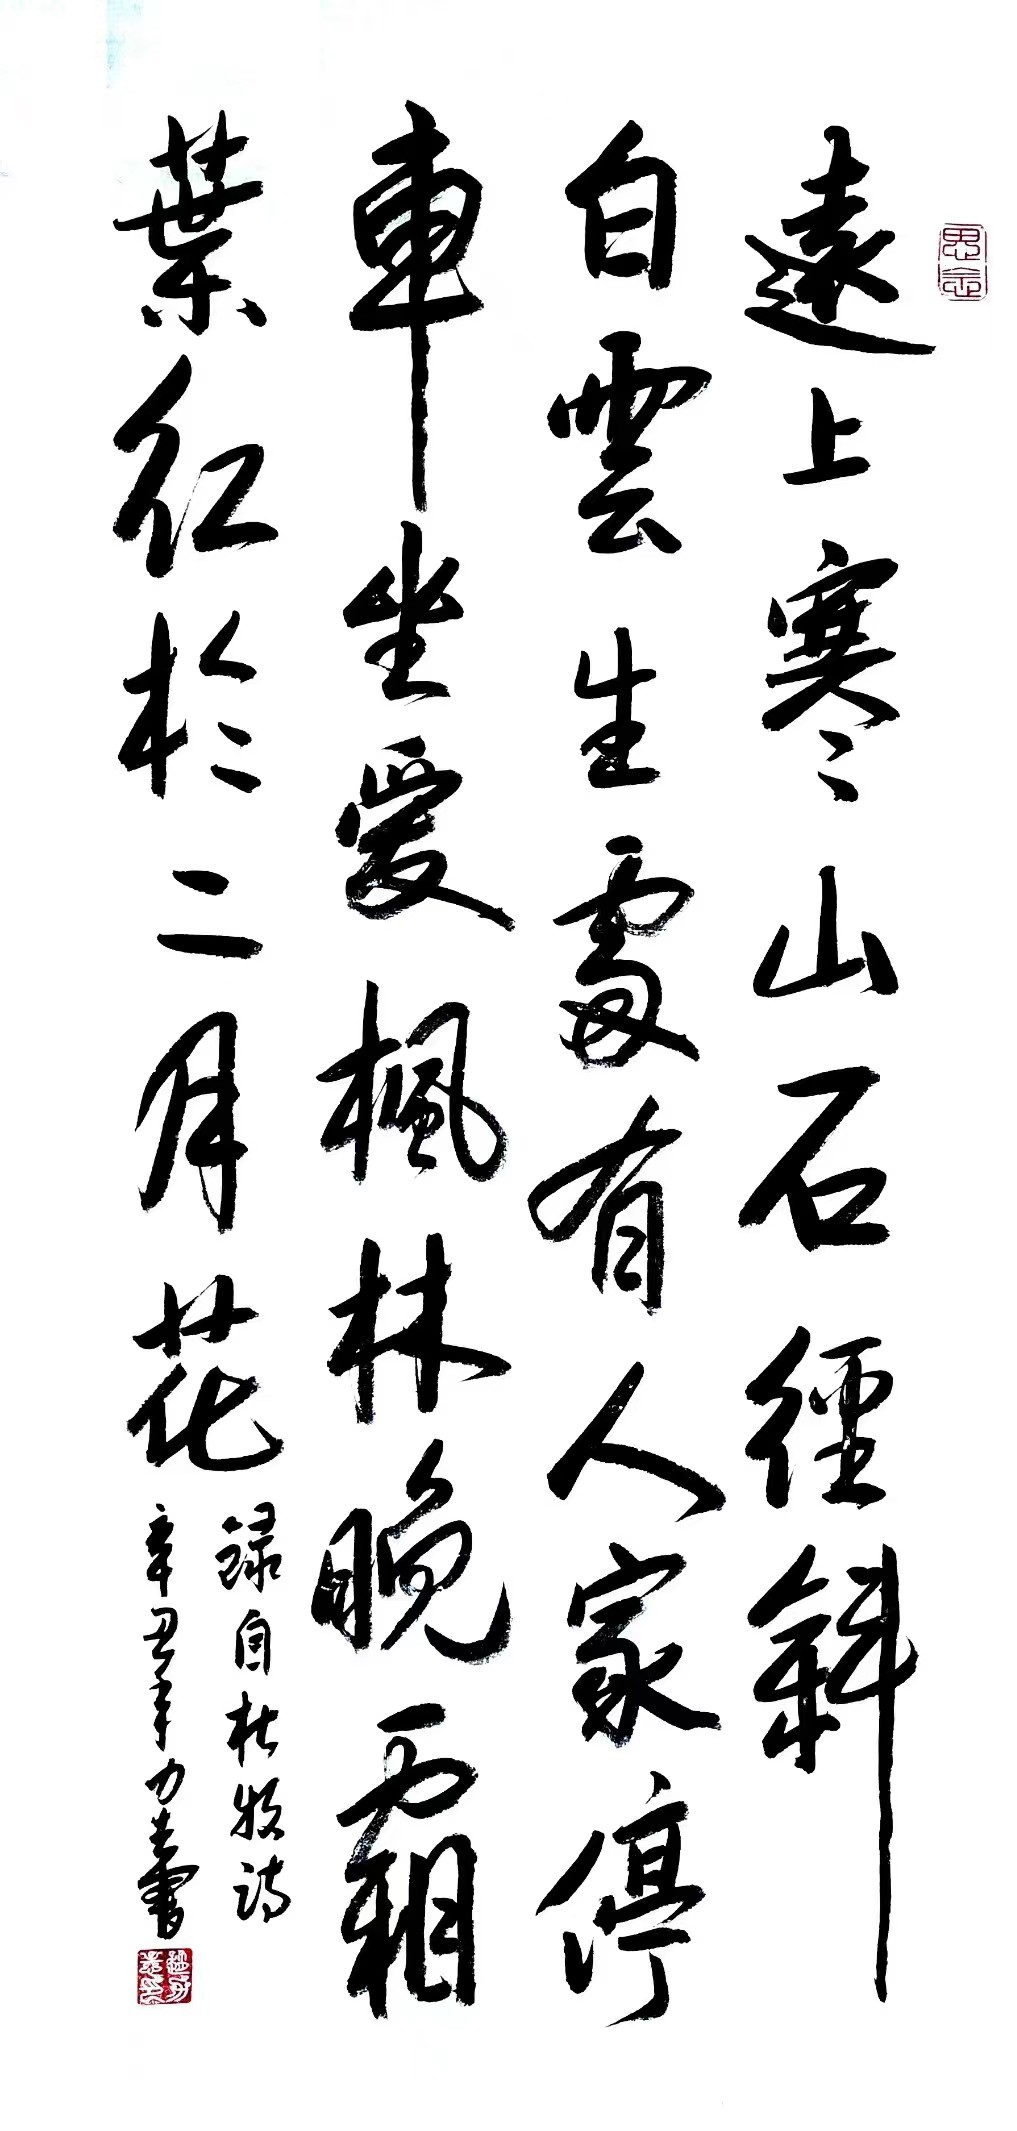 思念
遠上寒山石徑斜
白雲生處有人家停
車坐愛楓林晚霜
葉紅於二月花
録自杜牧詩
辛丑年力書